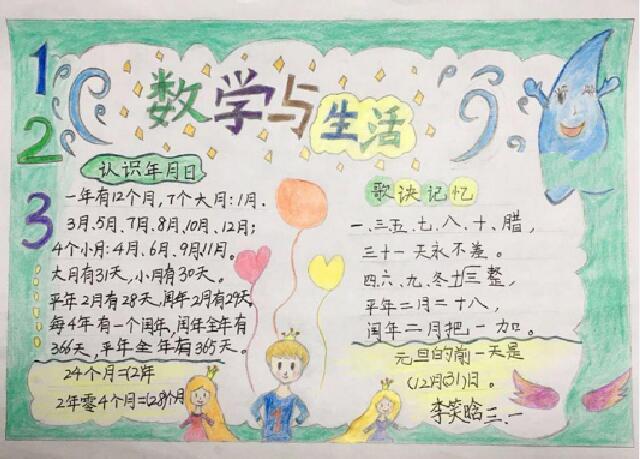 数学与生活
1
2
3
认识年月日
一年有12个月,7个大月:1月、
3月、5月、7月、8月、10月、12月;
4个小月:4月、6月、9月、11月。
大月有31天,小月有30天。
平年2月有28天,闰年2月有29天,
每4年有一个闰年,闰年全年有
366天,平年全年有365天。
24个月=(2)年
2年零4个月=(28)个月
歌诀记忆
一、三五、七、八、十、腊,
三十一天永不差。
四、六、九、冬三十整,
平年二月二十八,
闰年二月把一加。
元旦的前一天是
(12)月(31)日。
李笑晗 三、一
1